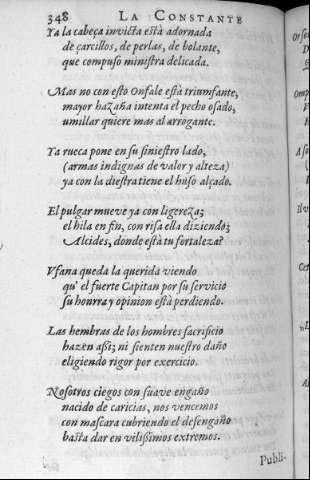 348 LA CONSTANTE
Ya la cabeça invicta està adornada
de çarcillos, de perlas, de bolante,
que compuso ministra delicada.
Mas no con esto Onfale està triunfante,
mayor hazaña intenta el pecho osado,
umillar quiere mas al arrogante.
Ya rueca pone en su siniestro lado,
(armas indignas de valor y alteza)
ya con la diestra tiene el húso alçado.
El pulgar mueve ya con ligereza;
el hila en fin, con risa ella diziendo;
Alcides, donde està tu fortaleza?
Vfana queda la querida viendo
qu' el fuerte Capitan por su servicio
su hourra y opinion està perdiendo.
Las hembras de los hombres sacrificio
hazen assi; ni sienten nuestro daño
eligiendo rigor por exercicio.
Nosotros ciegos con suave engaño
nacido de caricias, nos vencemos
con mascara cubriendo el desengaño
basta dar en vilissimos extremos.
Publi-